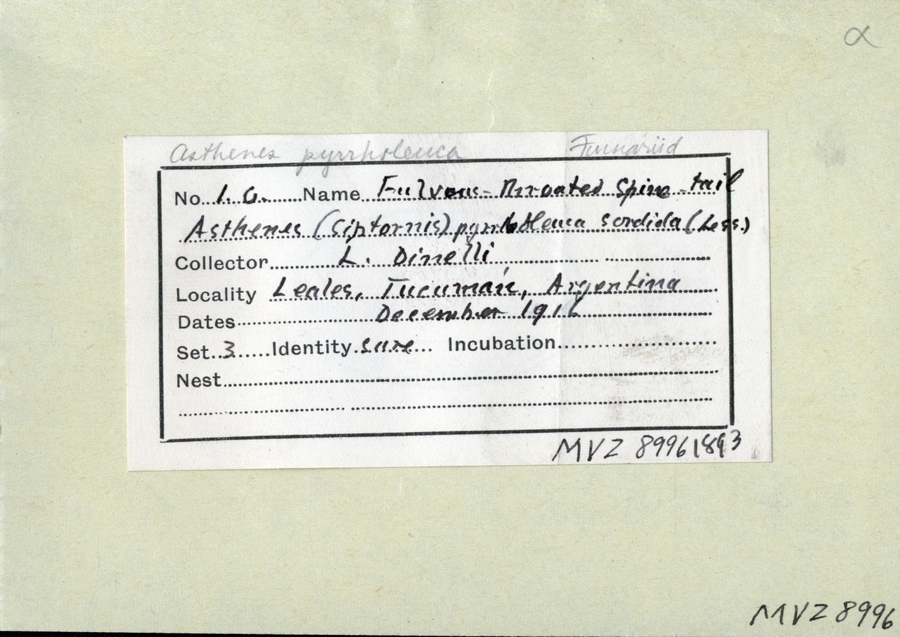 α
Asthenes pyrrholeuca Furnariid
No. 1. G. Name Fulvous-Throated Spine-tail
Asthenes (Siptornis) pyrrholeuca sordida (Less.)
Collector L. Dinelli
Locality Leales, Tucumán, Argentina
Dates December 1916
Set 3 Identity sure Incubation
Nest
MVZ 8996 1893
MVZ 8996